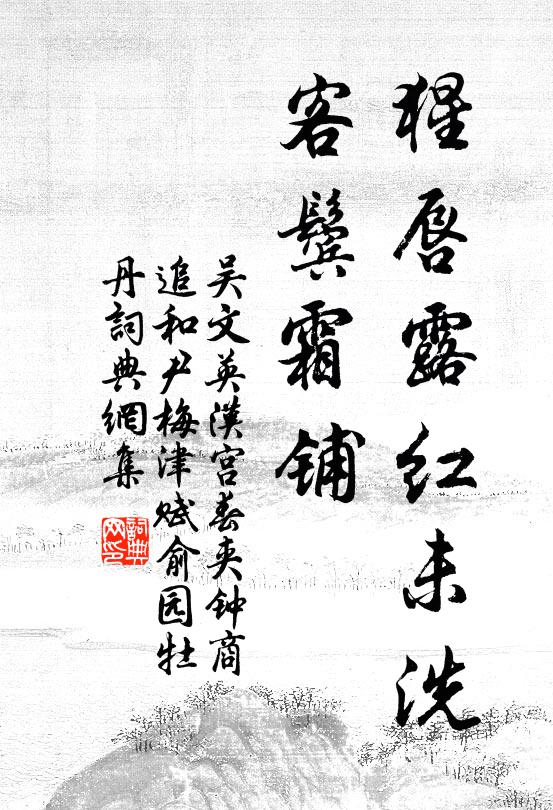 猩唇露红未洗
客鬓霜铺
吴文英汉宫春夹钟商
追和尹梅津赋俞园牡
丹詞典網集
詞典网印